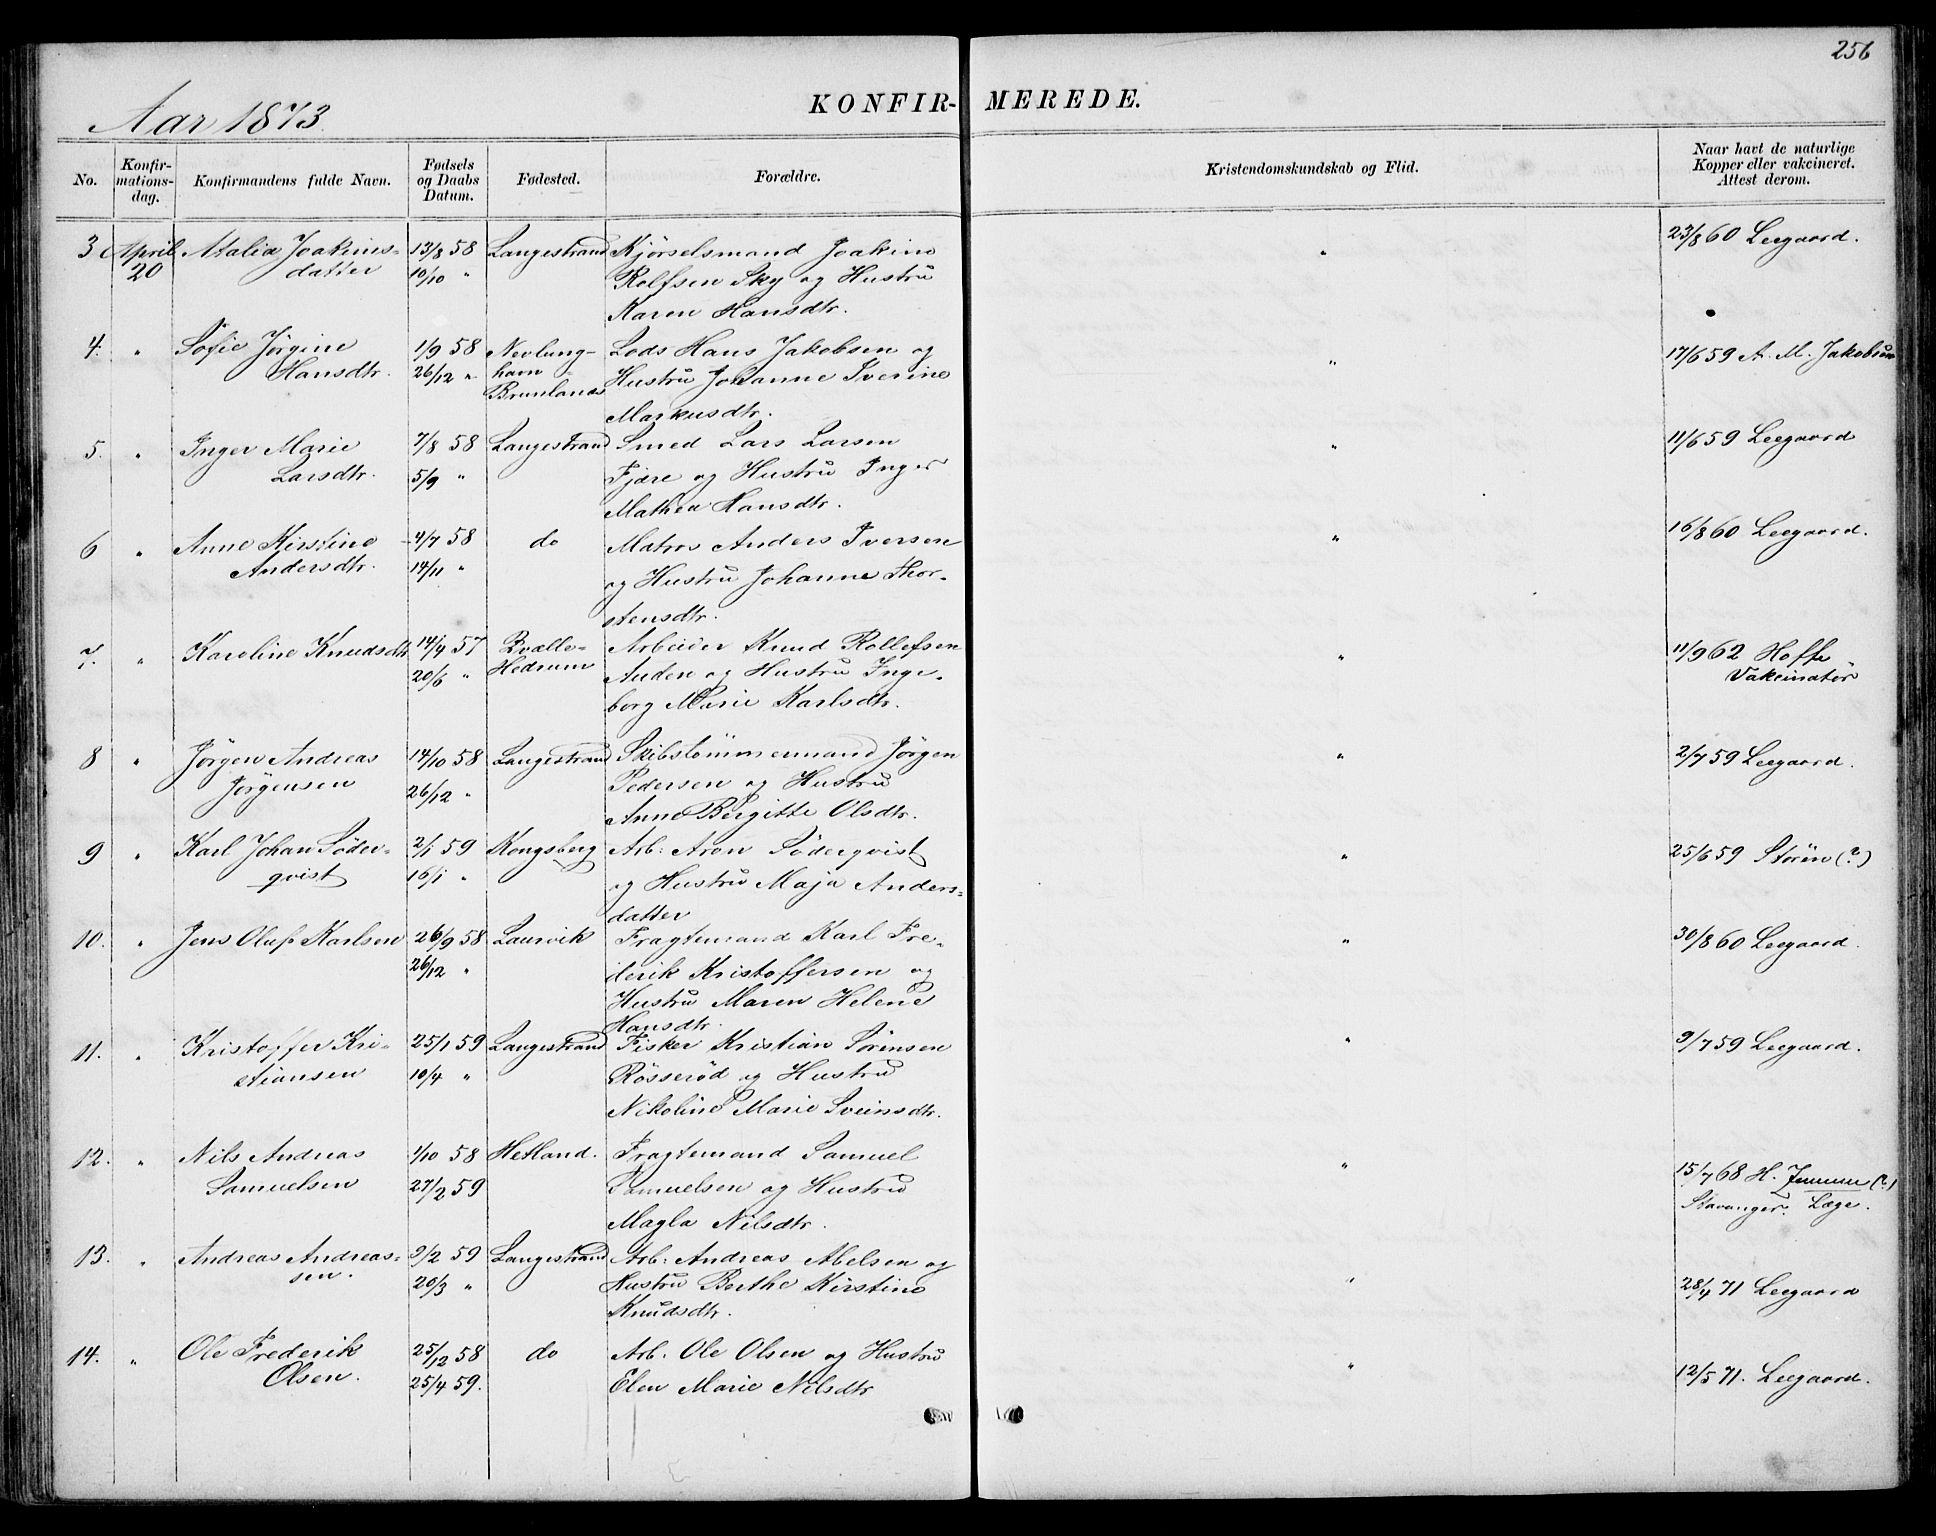 256
Aar 1873.
KONFIR- MEREDE.
No.
Konfir-
mations-
dag.
Konfirmandens fulde Navn.
Fødsels
og Daabs
Datum.
Fødested.
Forældre.
Kristendomskundskab og Flid.
Naar havt de naturlige
Kopper eller vakcineret.
Attest derom.
3 April Atalia Joakims- 13/8 58 Langestrand Kjørselsmand Joakim " 23/8 60 Leegaard.
20 datter 10/10 " Rolfsen Sky og Hustru
Karen Hansdtr.
4. " Sofie Jørgine 1/9 58 Nevlung- Lods Hans Jakobsen og " 17/6 59 A. M. Jakobsen
Hansdtr. 26/12 " havn Hustru Johanne Iverine
Brunlanes Markusdtr.
5. " Inger Marie 7/8 58 Langestrand Smed Lars Larsen " 11/6 59 Leegaard
Larsdtr. 5/9 " Fjære og Hustru Inger
Mathea Hansdtr.
6 " Anne Kirstine 4/7 58 do Matros Anders Iversen " 16/8 60 Leegaard.
Andersdtr. 14/11 " og Hustru Johanne Thor-
stensdtr.
7. " Karoline Knudsdtr 14/4 57 Kvælle- Arbeider Knud Rollefsen " 11/9 62 Hoffe
20/6 " Hedrum Auden og Hustru Inge- Vakcinatör
borg Marie Karlsdtr.
8 " Jørgen Andreas 14/10 58 Langestrand Skibstömmermand Jørgen " 2/7 59 Leegaard.
Jörgensen 26/12 " Pedersen og Hustru
Anne Birgitte Olsdtr.
9 " Karl Johan Söder- 2/1 59 Kongsberg Arb: Aron Söderqvist " 25/6 59 Storen (?)
qvist 16/1 " og Hustru Maja Anders-
datter
10. " Jens Oluf Karlsen 26/9 58 Laurvik Fragtemand Karl Fre- " 30/8 60 Leegaard.
26/12 " derik Kristoffersen og
Hustru Maren Helene
Hansdtr.
11. " Kristoffer Kri- 25/1 59 Langestrand Fisker Kristian Sørensen " 9/7 59 Leegaard.
stiansen 10/4 " Rösseröd og Hustru
Nikoline Marie Sveinsdtr.
12. " Nils Andreas 1/10 58 Hetland. Fragtemand Samuel "
Samuelsen 27/2 59 Samuelsen og Hustru 15/7 68 H. (?)
Magla Nilsdtr. Stavanger. Læge.
13. " Andreas Andreas- 9/2 59 Langestrand Arb: Andreas Abelsen og "
sen. 20/3 " Hustru Berthe Kirstine 28/4 71 Leegaard
Knudsdtr.
14. " Ole Frederik 25/12 58 do Arb. Ole Olsen og Hustru "
Olsen. 25/4 59. Elen Marie Nilsdtr 12/5 71. Leegaard.